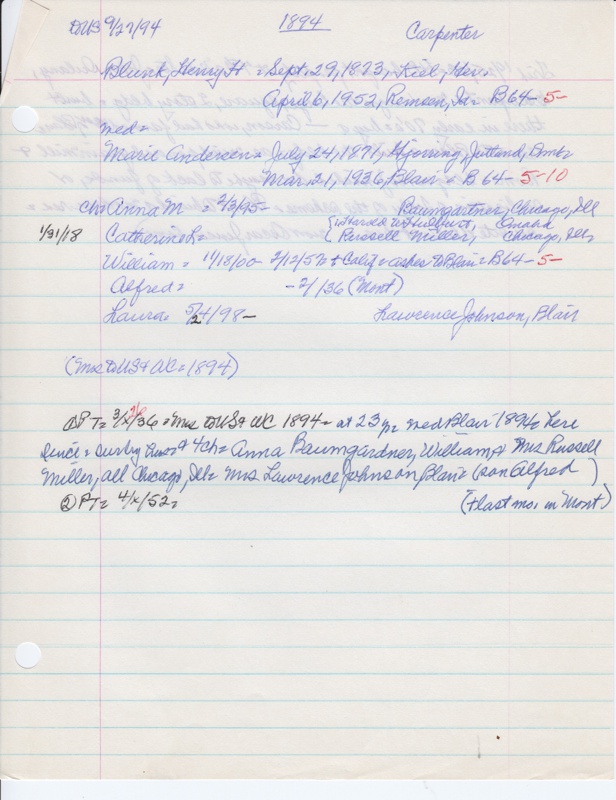 DUS 9/27/94 1894 Carpenter
Blunk, Henry H = Sept. 29, 1873, Kiel, Ger.
April 6, 1952, Remsen, Ia = B64-5-
med =
Marie Andersen = July 24, 1871, Hjorring, Jutland, Dmk
Mar. 21, 1936, Blair = B64-5-10
ch = Anna M = 2/3/95- Baumgartner, Chicago, Ill
1/31/18 Catherine L = Harold W Hulbert, Omaha
Russell Miller, Chicago, Ill
William = 11/18/00 - 2/12/57 + Calif = ashes to Blair = B64-5-
Alfred = -2/36 (Mont)
Laura = 5/4/98- Lawrence Johnson, Blair
2
(Mrs to US + WC = 1894)
① PT = 3/x/36 = Mrs to US + WC 1894 = at 23 yr = med Blair 1894 = here
26
since = surv by + 4ch = Anna Baumgardner, William, + Mrs Russell
Miller, all Chicago, Ill = Mrs Lawrence Johnson Blair = (son Alfred )
② PT = 4/x/52 = (+ last mo. in Mont)